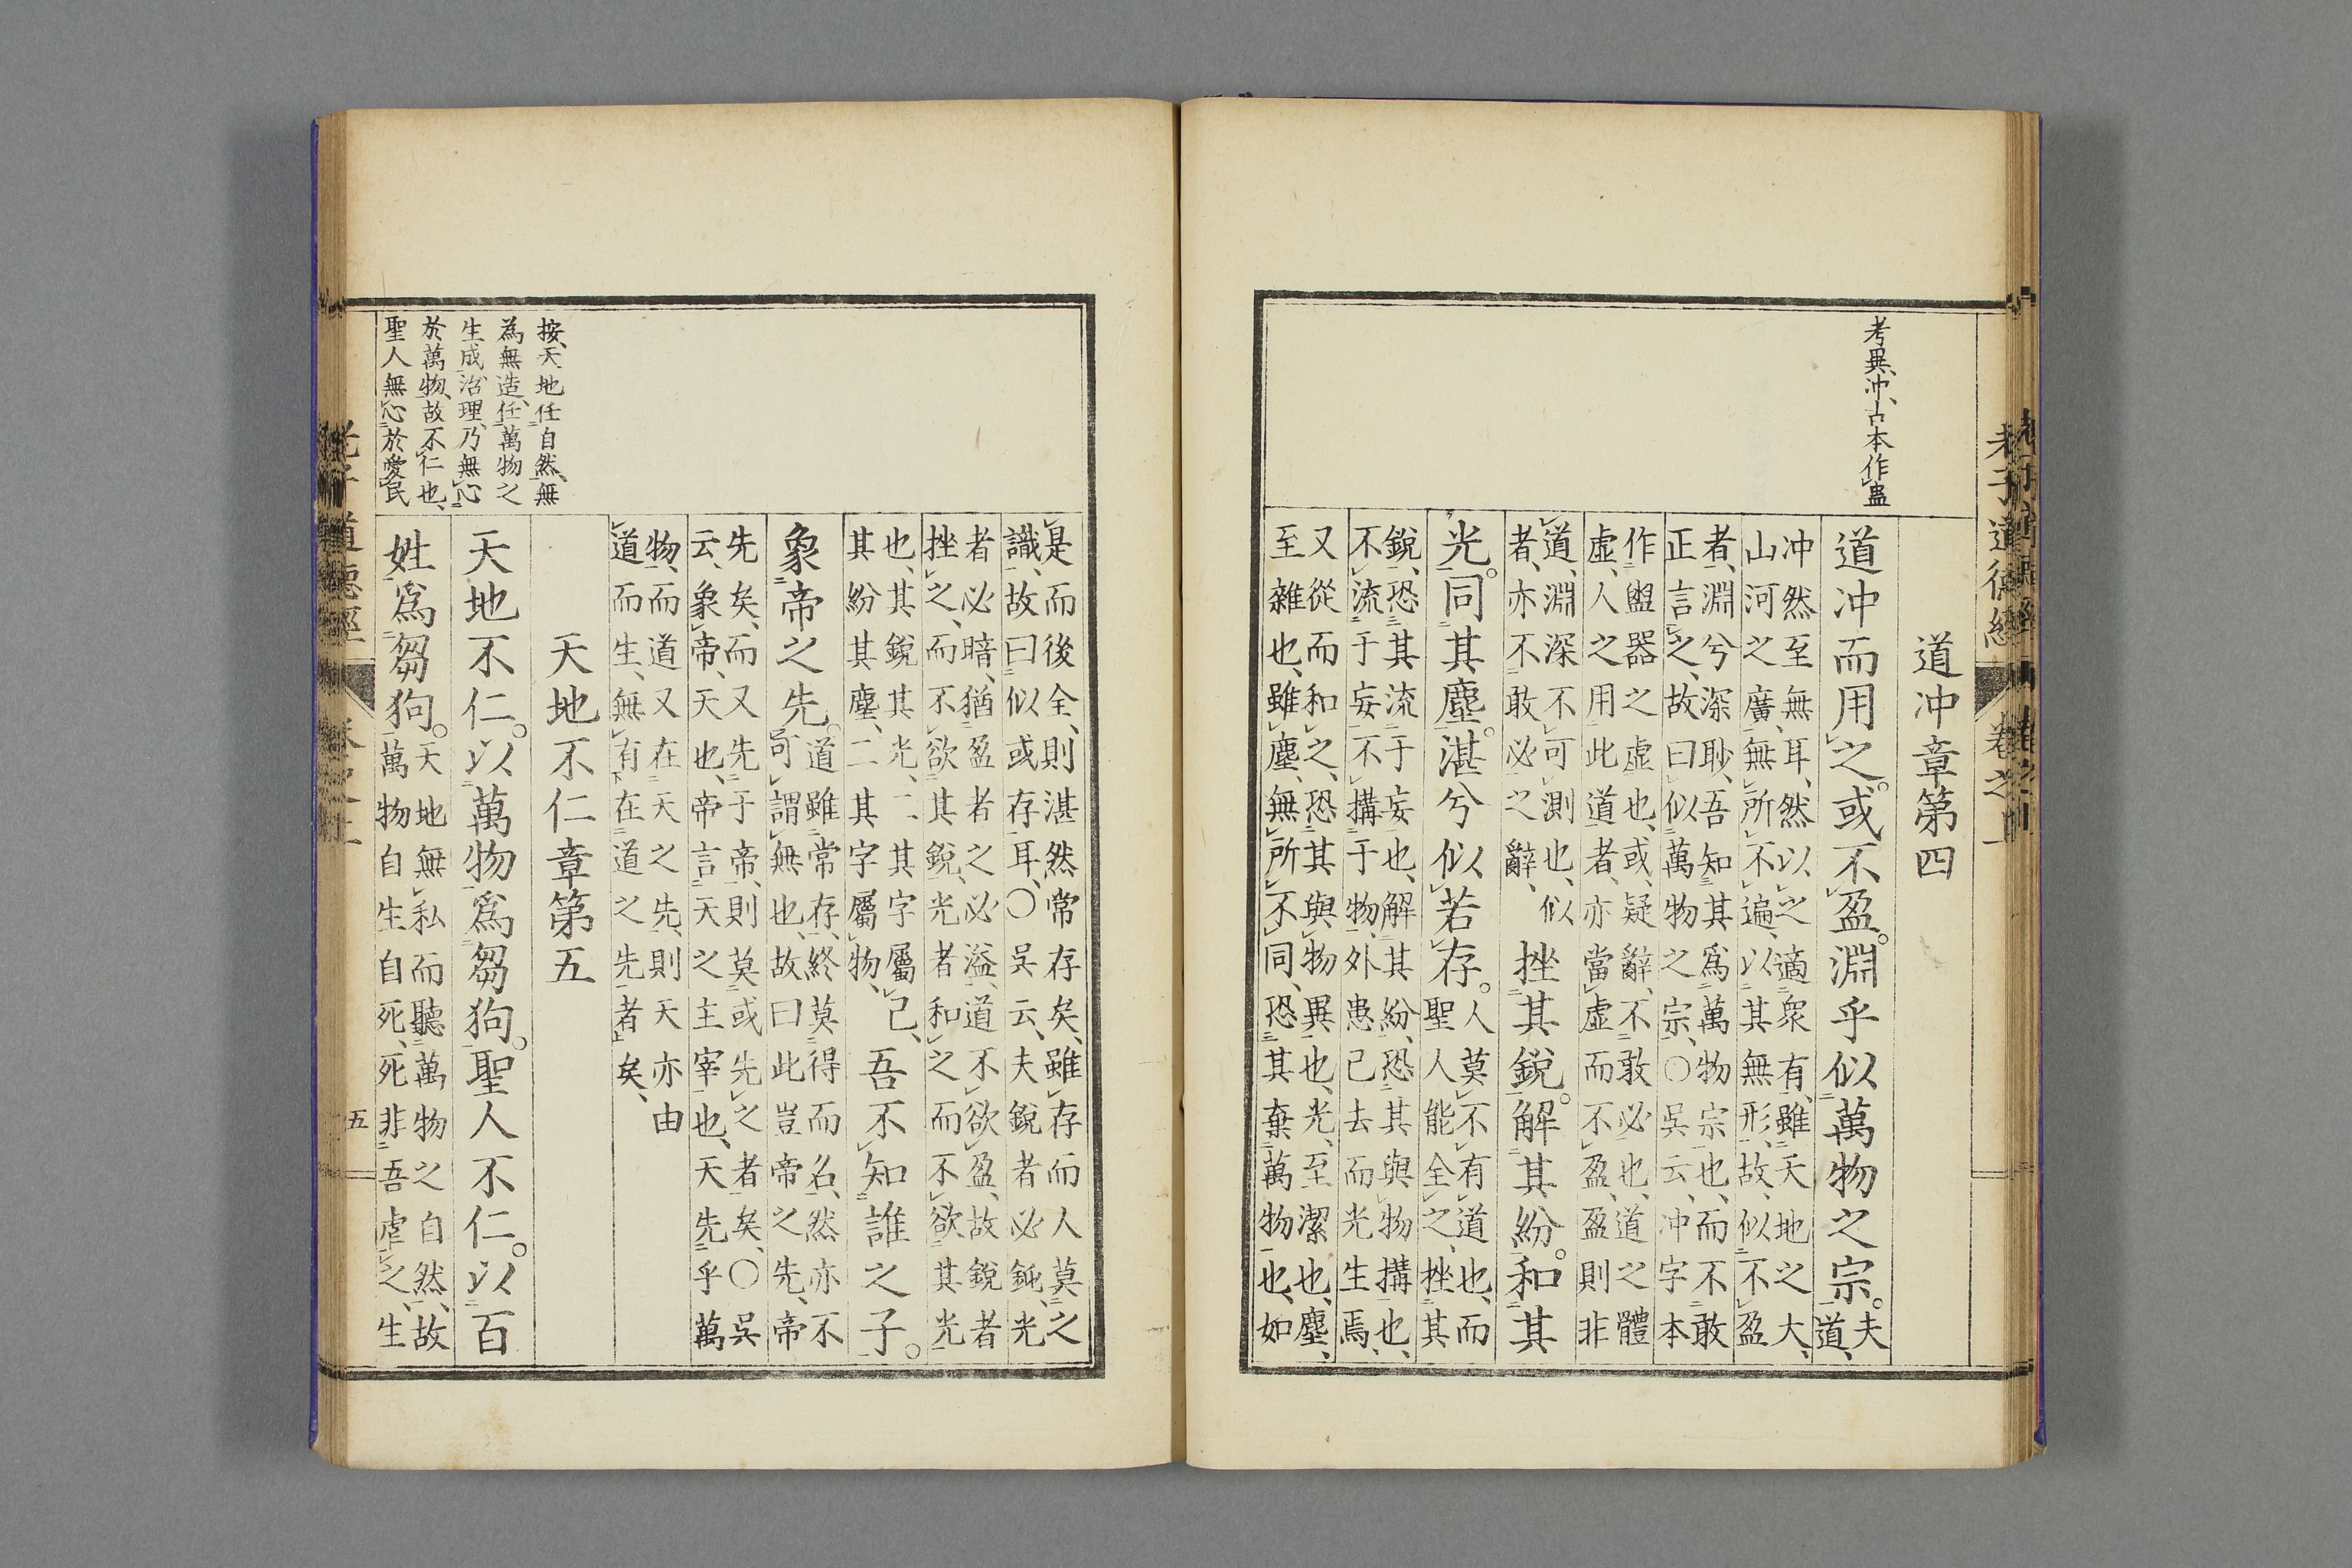 老子道德經
卷之上
考異、冲、古本作盅
道冲章第四
道冲而用之。或不盈。淵乎似萬物之宗。夫
道、
冲然至無耳、然以之適衆有、雖天地之大、
山河之廣、無所不遍、以其無形、故似不盈
者、淵兮深眇、吾知其爲萬物宗也、而不敢
正言之、故曰似萬物之宗、〇吳云、冲字本
作盅器之虛也、或、疑辭、不敢必也、道之體
虛、人之用此道者、亦當虛而不盈、盈則非
道、淵深不可測也、似
者、亦不敢必之辭、
挫其銳。解其紛。和其
光。同其塵。湛兮似若存。人莫不有道也、而
聖人能全之、挫其
銳、恐其流于妄也、解其紛、恐其與物搆也、
不流于妄、不搆于物、外患已去而光生焉、
又從而和之、恐其與物異也、光、至潔也、塵、
至雜也、雖塵、無所不同、恐其棄萬物也、如
是而後全、則湛然常存矣、雖存而人莫之
識、故曰似或存耳、〇吳云、夫銳者必鈍、光
者必暗、猶盈者之必溢、道不欲盈、故銳者
挫之、而不欲其銳、光者和之而不欲其光
也、其銳其光、二其字屬己、
其紛其塵、二其字屬物、
吾不知誰之子。
象帝之先。道雖常存、終莫得而名、然亦不
可謂無也、故曰此豈帝之先、帝
先矣、而又先于帝、則莫或先之者矣、〇吳
云、象帝、天也、帝言天之主宰也、天先乎萬
物、而道又在天之先、則天亦由
道而生、無有在道之先者矣、
天地不仁章第五
天地不仁。以萬物爲芻狗。聖人不仁。以百
姓爲芻狗。天地無私而聽萬物之自然、故
萬物自生自死、死非吾虐之、生
按、天地任自然、無
為無造、任萬物之
生成、治理、乃無心
於萬物、故不仁也、
聖人無心於愛民
老子道德經
五